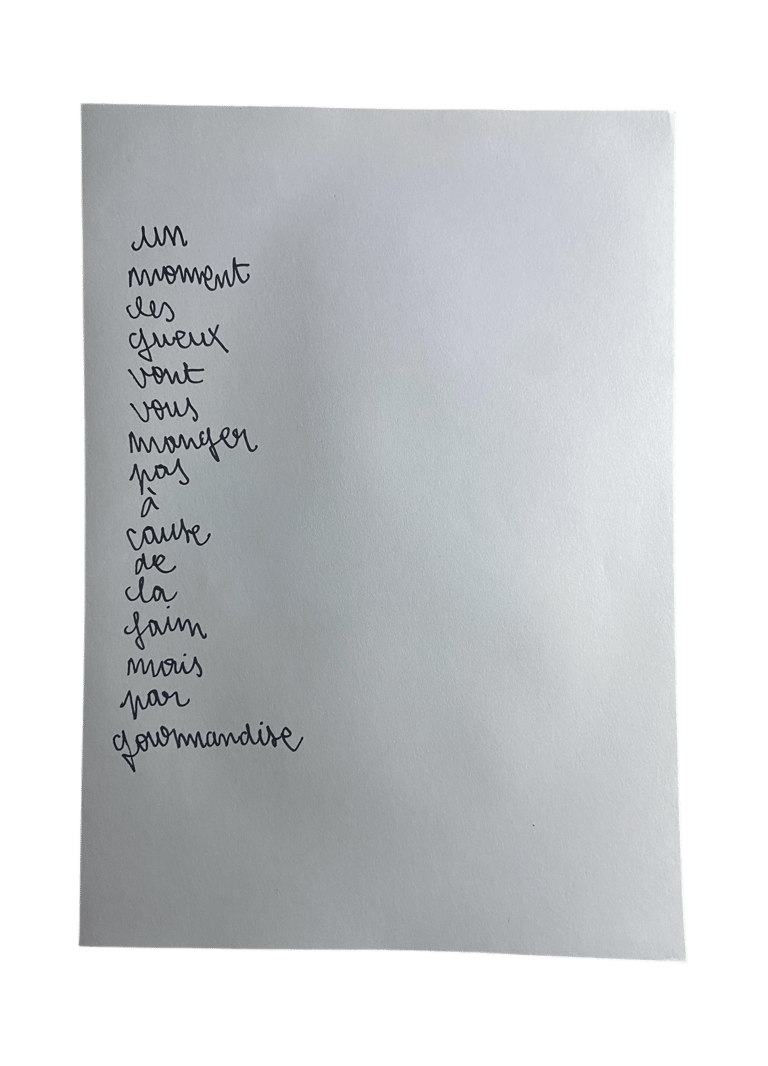 un
moment
les
gueux
vont
vous
manger
pas
à
cause
de
la
faim
mais
par
gourmandise